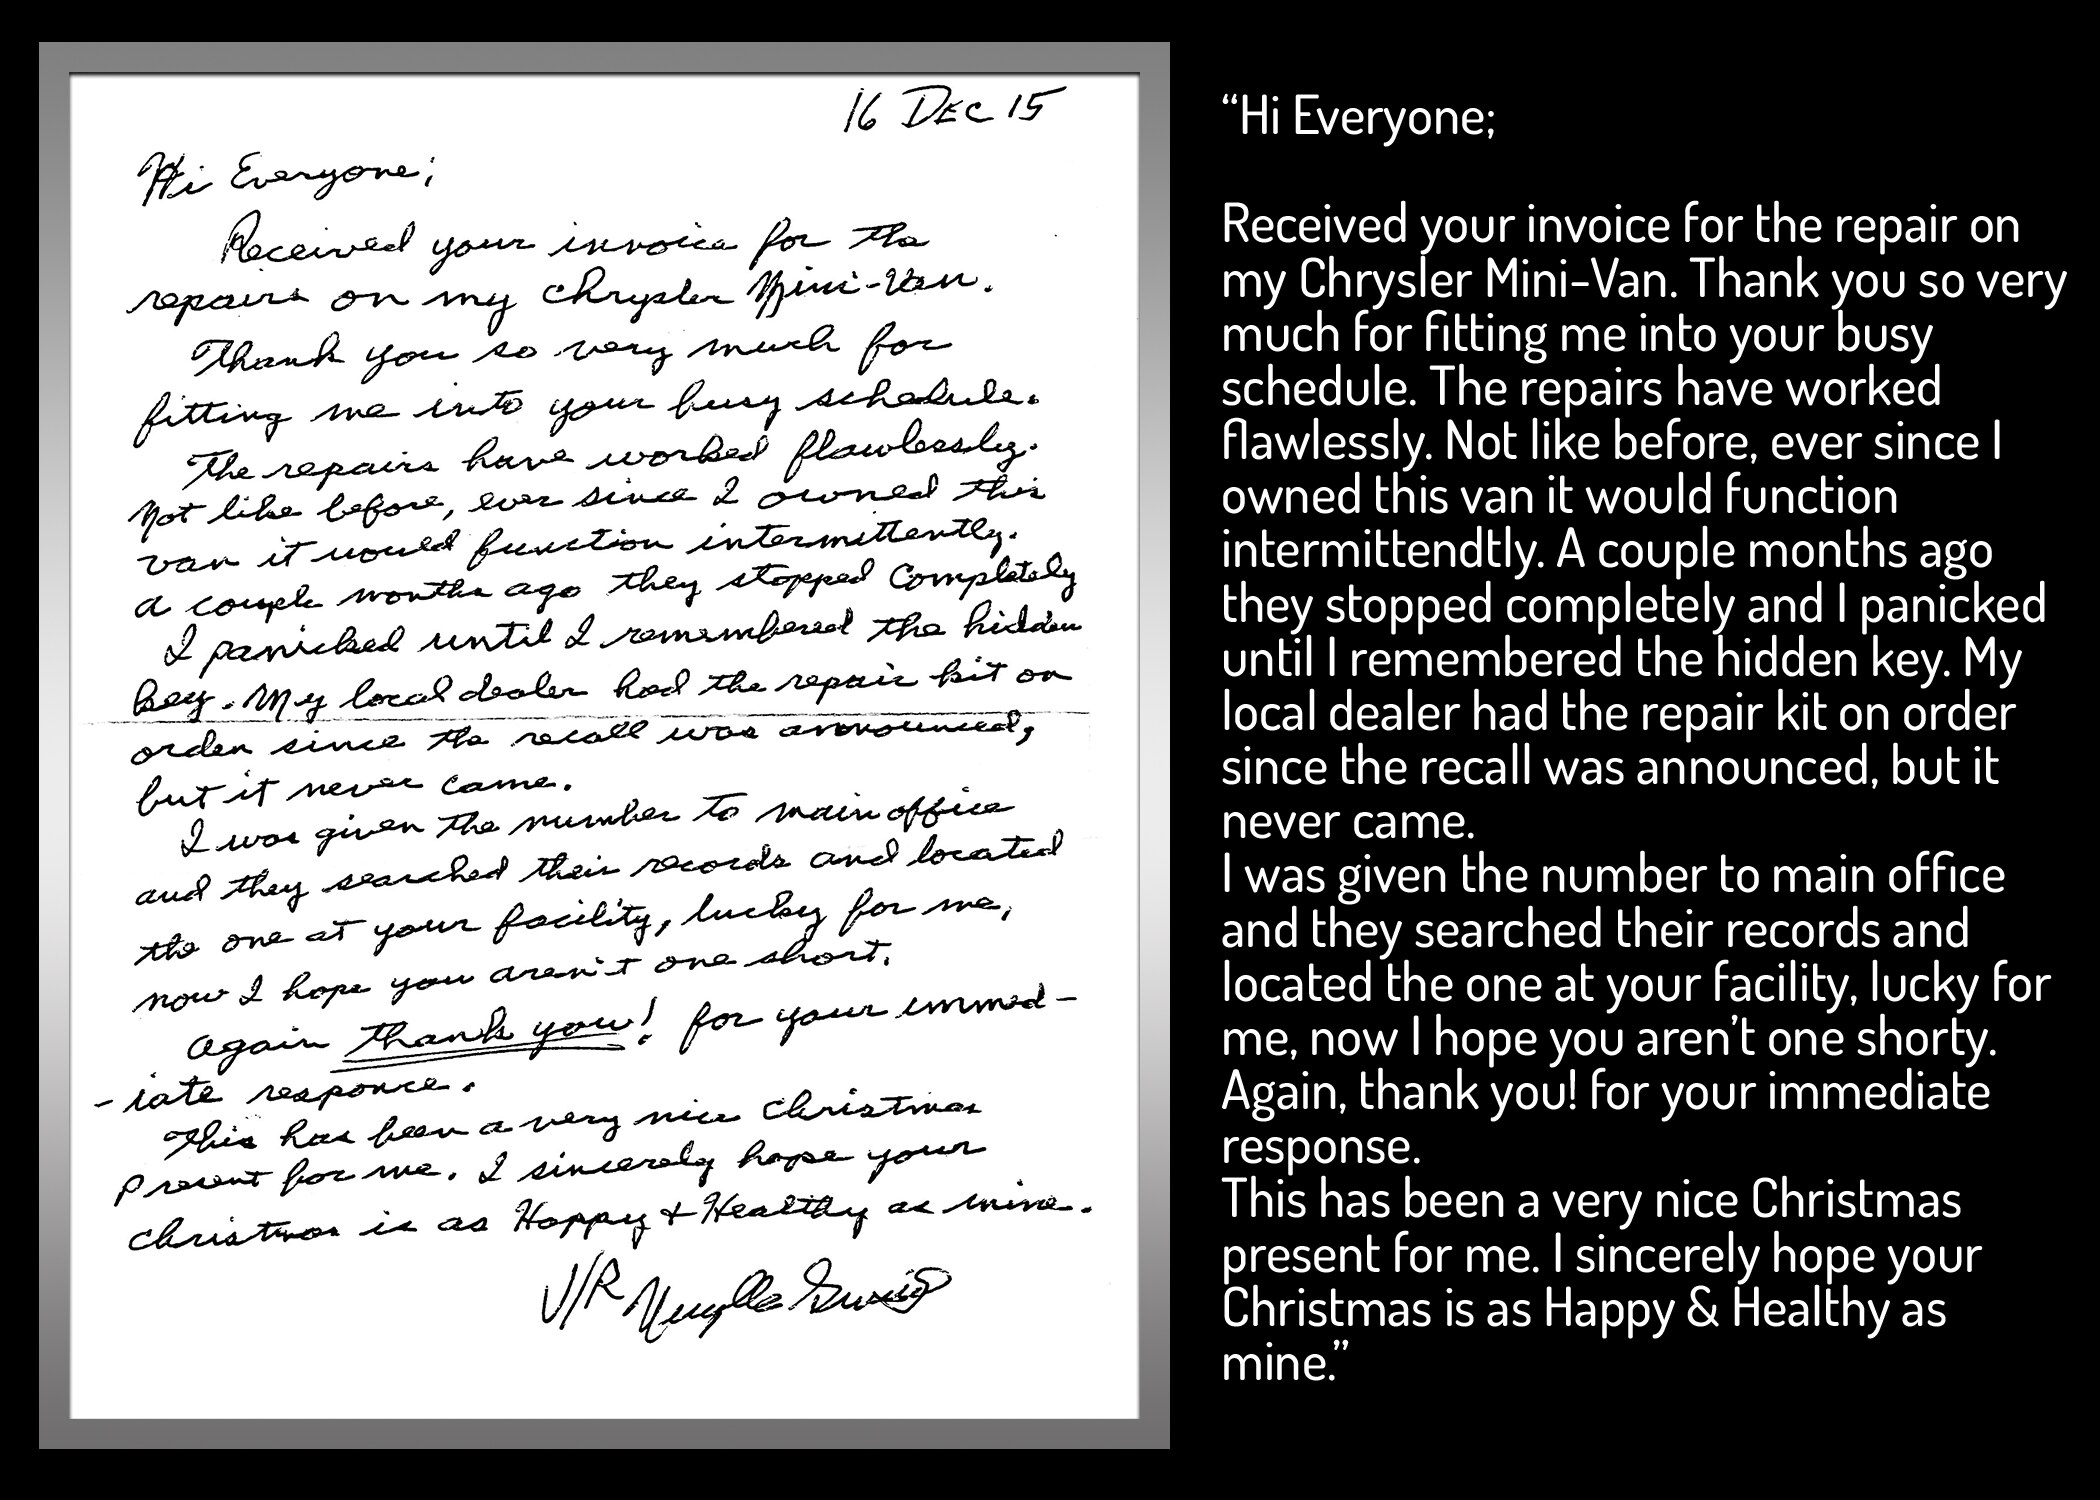 16 DEC 15
Hi Everyone;
Received your invoice for the
repairs on my Chrysler Mini-Van.
Thank you so very much for
fitting me into your busy schedule.
The repairs have worked flawlessly.
Not like before, ever since I owned this
van it would function intermittently.
A couple months ago they stopped Completely
I panicked until I remembered the hidden
key. My local dealer had the repair kit on
order since the recall was announced,
but it never came.
I was given the number to main office
and they searched their records and located
the one at your facility, lucky for me,
now I hope you aren't one short.
Again thank you! for your immed-
-iate responce.
This has been a very nice Christmas
present for me. I sincerely hope your
Christmas is as Happy & Healthy as mine.
V/R
“Hi Everyone;
Received your invoice for the repair on
my Chrysler Mini-Van. Thank you so very
much for fitting me into your busy
schedule. The repairs have worked
flawlessly. Not like before, ever since I
owned this van it would function
intermittendtly. A couple months ago
they stopped completely and I panicked
until I remembered the hidden key. My
local dealer had the repair kit on order
since the recall was announced, but it
never came.
I was given the number to main office
and they searched their records and
located the one at your facility, lucky for
me, now I hope you aren’t one shorty.
Again, thank you! for your immediate
response.
This has been a very nice Christmas
present for me. I sincerely hope your
Christmas is as Happy & Healthy as
mine.”